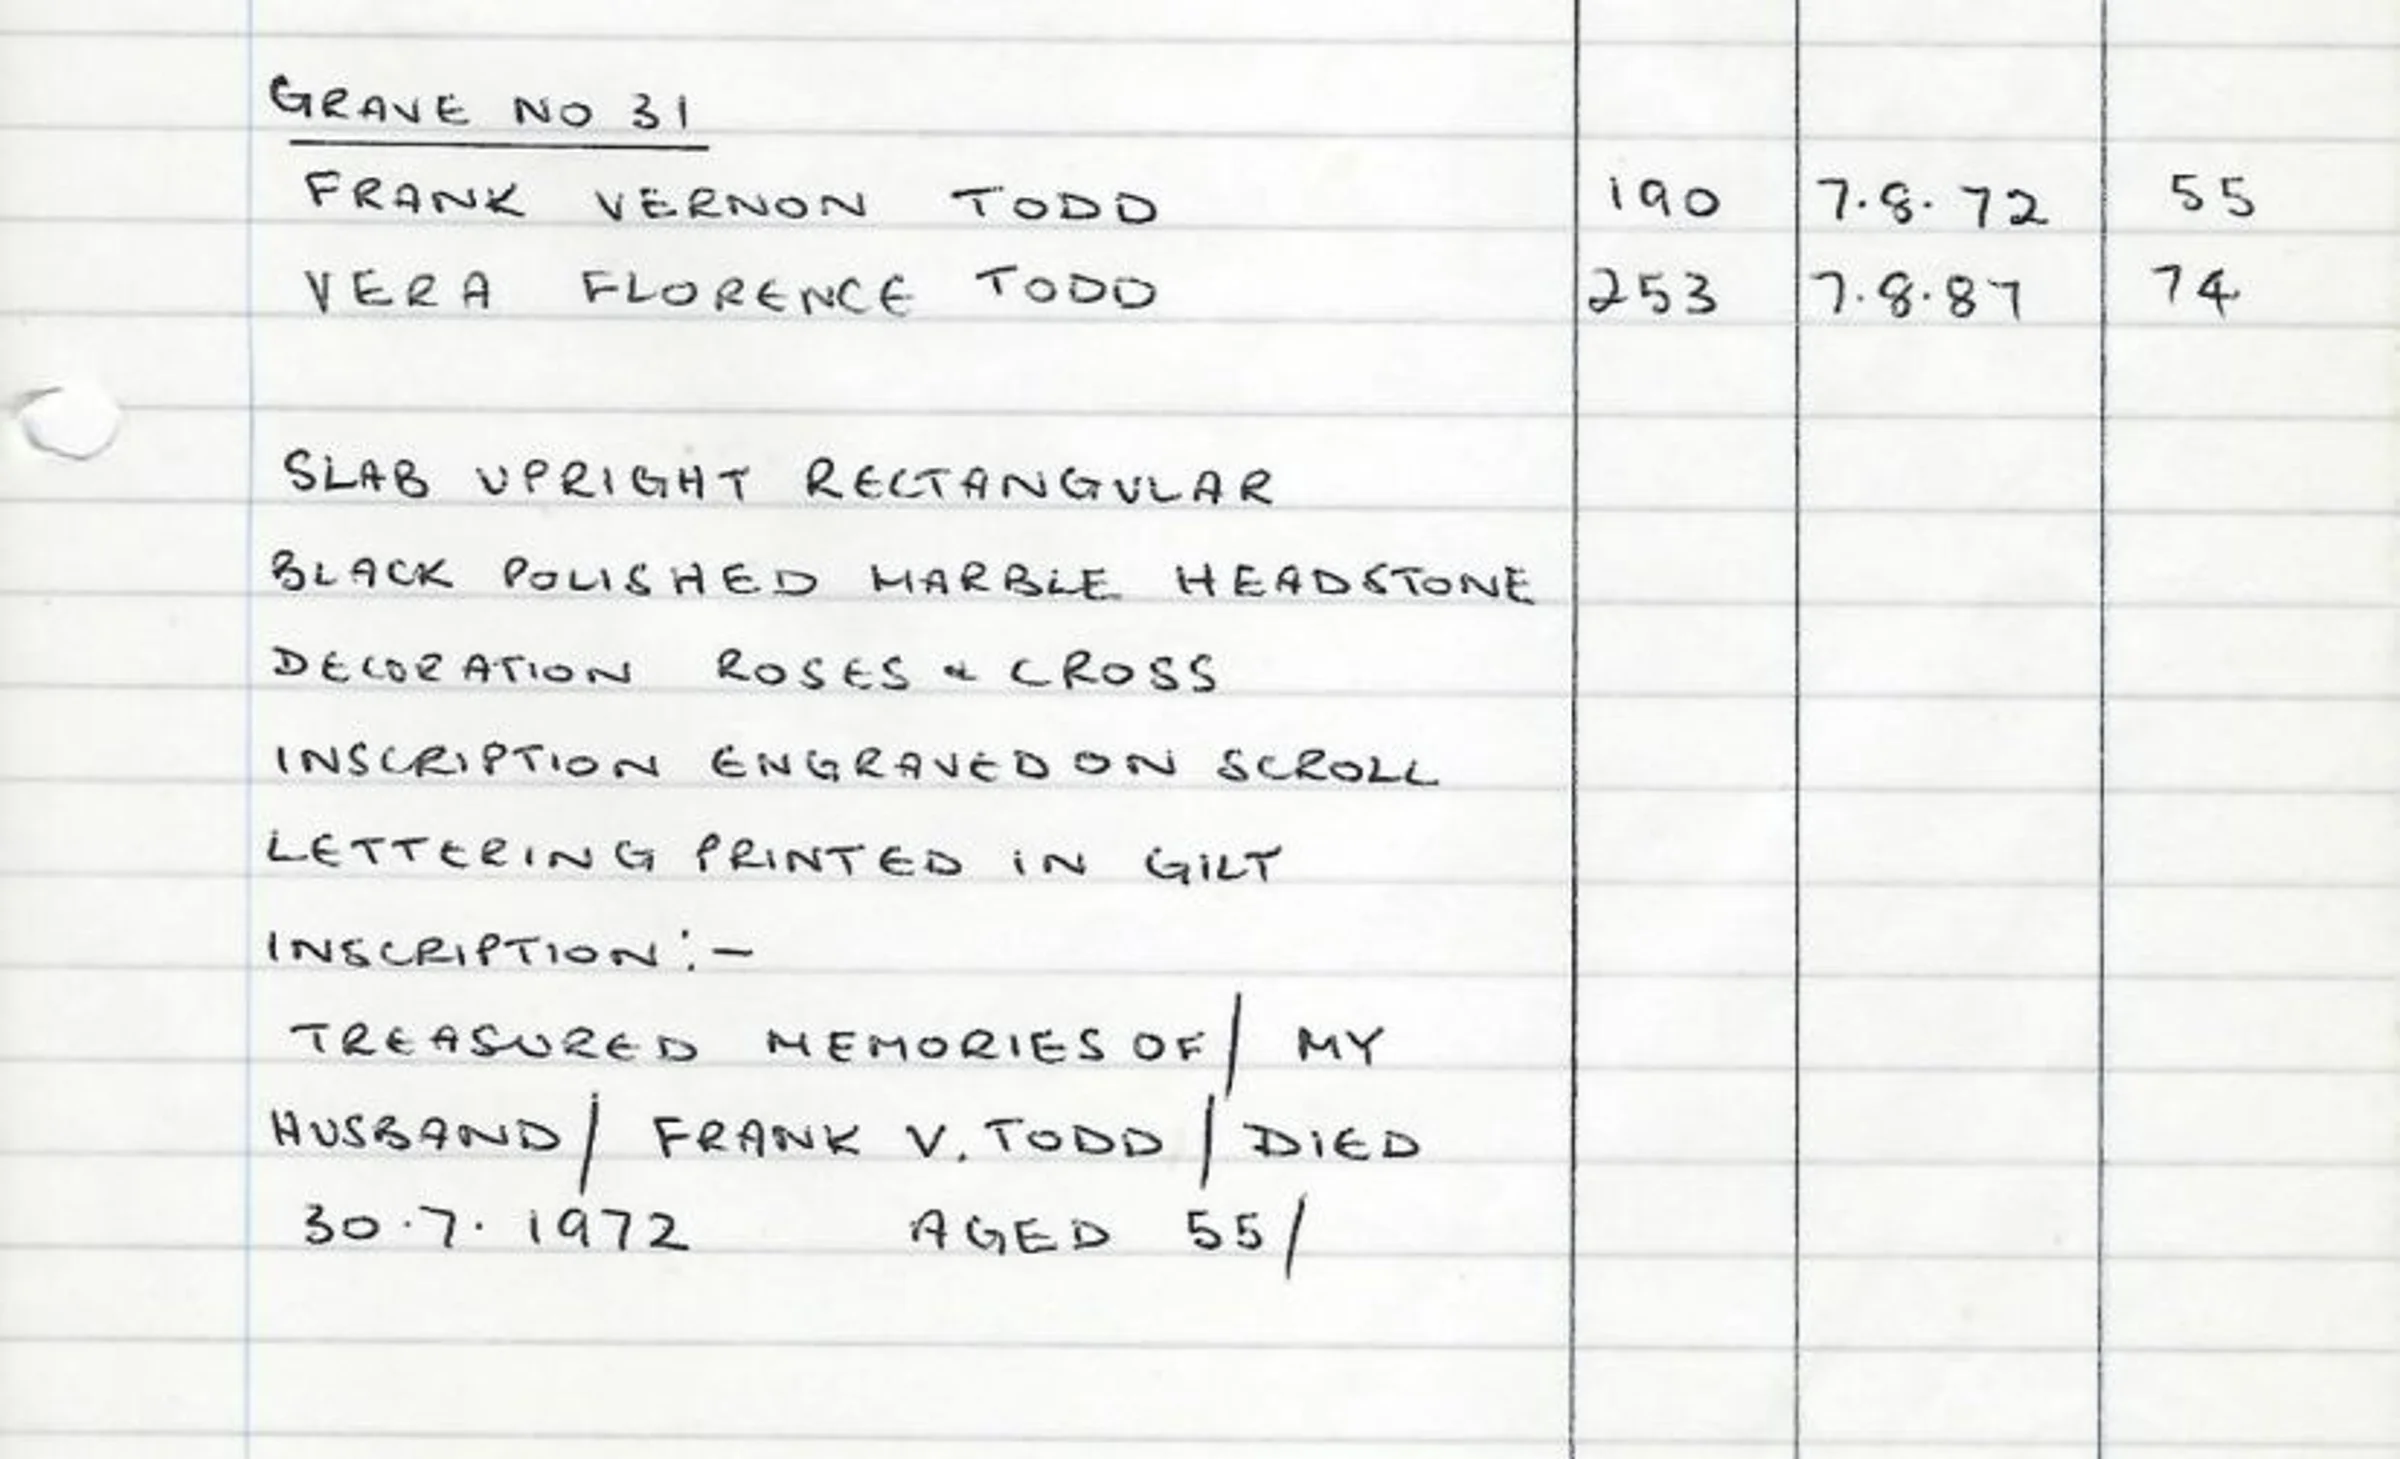 GRAVE NO 31
FRANK VERNON TODD 190 7.8.72 55
VERA FLORENCE TODD 253 7.8.87 74
SLAB UPRIGHT RECTANGULAR
BLACK POLISHED MARBLE HEADSTONE
DECORATION ROSES & CROSS
INSCRIPTION ENGRAVED ON SCROLL
LETTERING PRINTED IN GILT
INSCRIPTION:-
TREASURED MEMORIES OF/ MY
HUSBAND/ FRANK V. TODD/ DIED
30.7.1972 AGED 55/